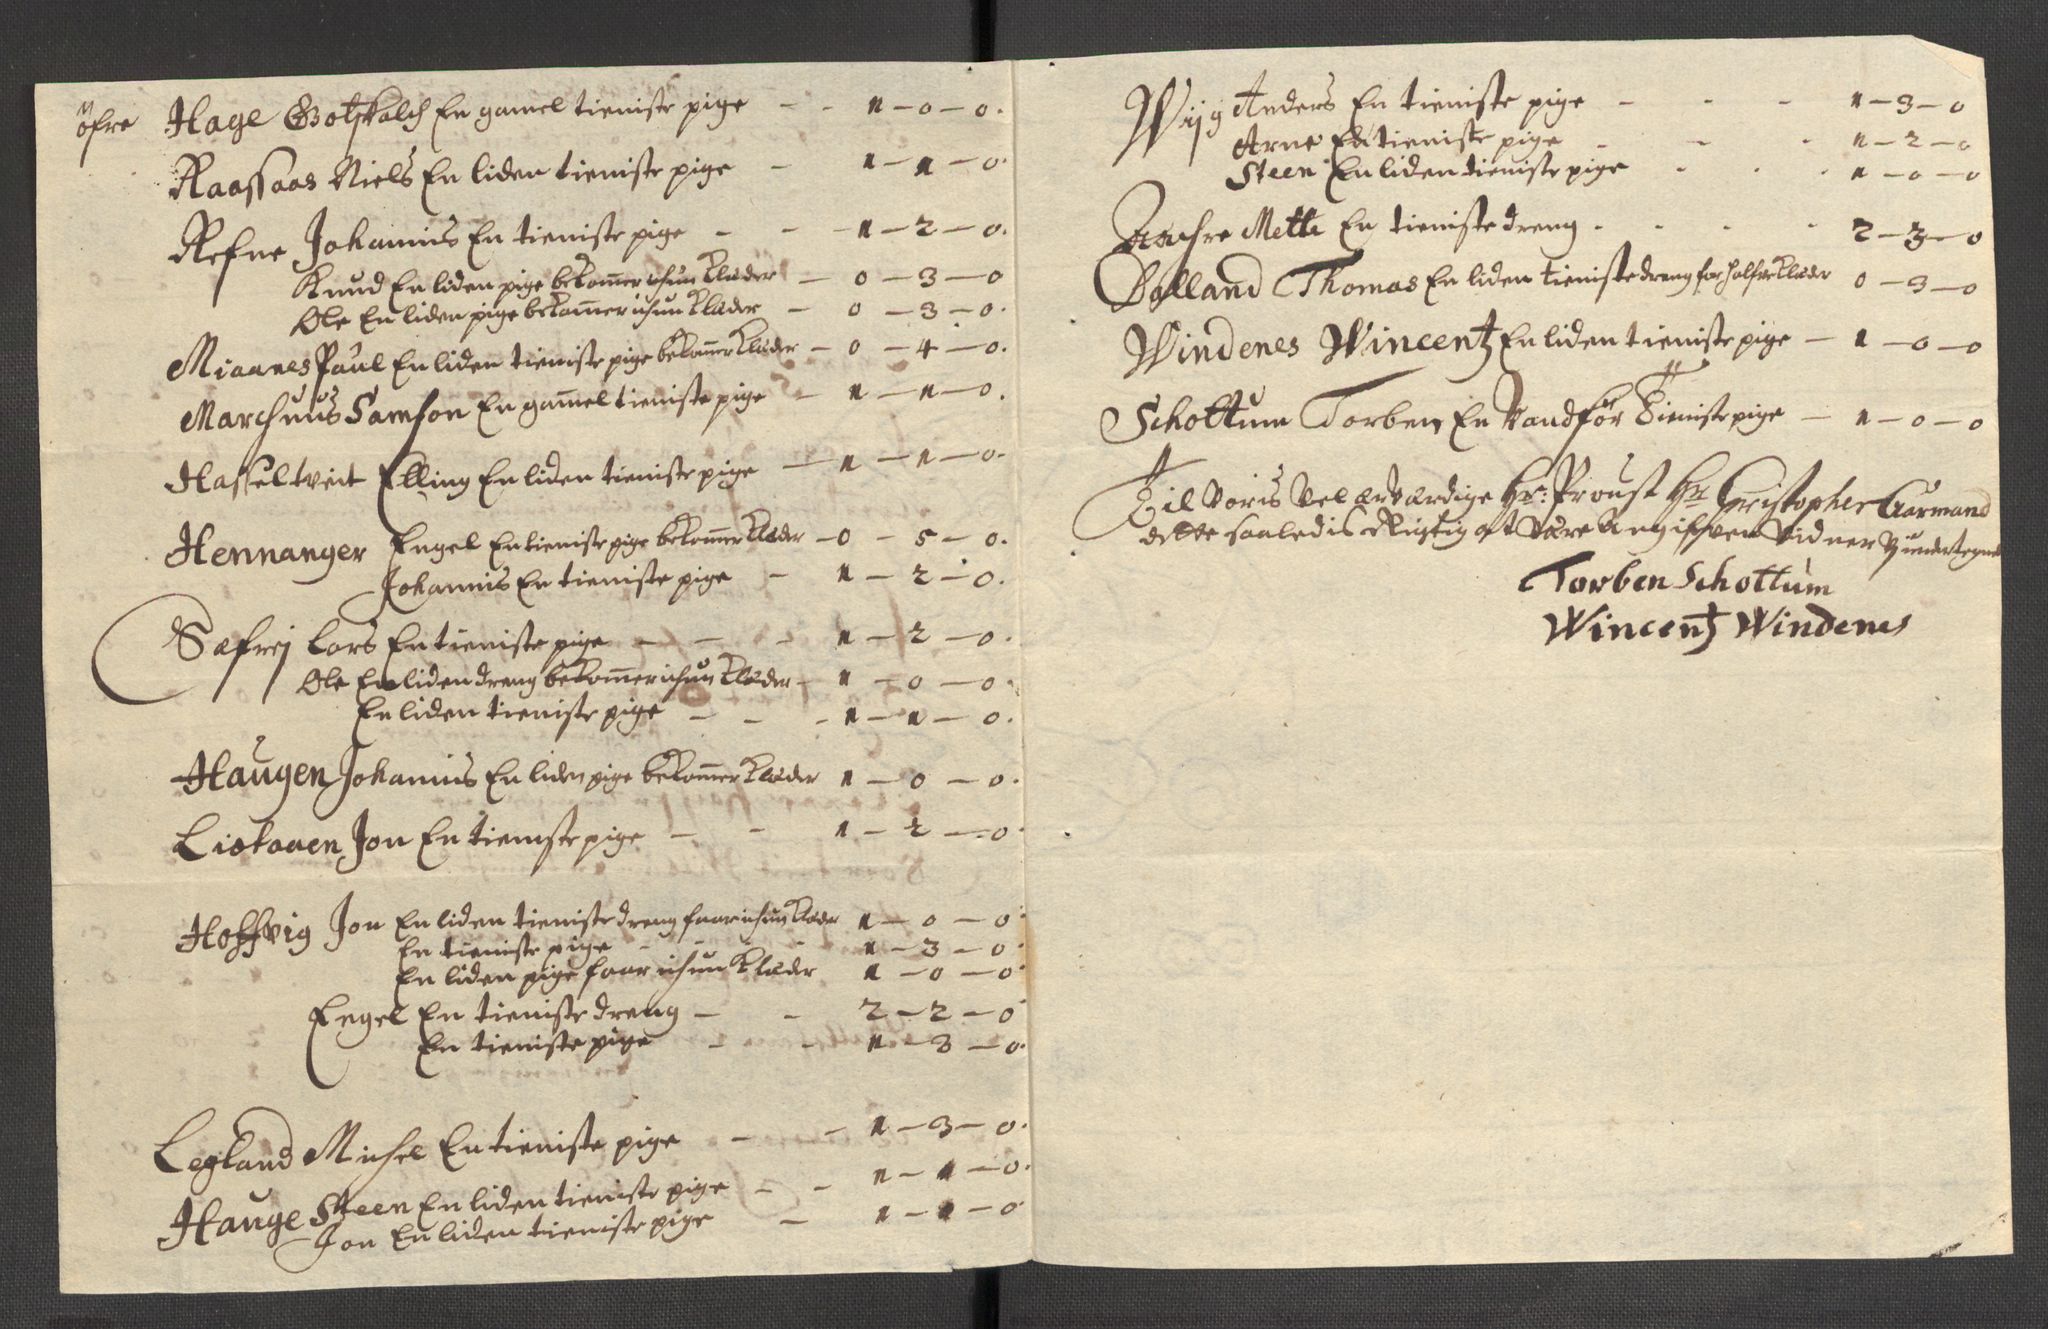 öfre Hage Gotskalch En gamel tieniste pige - - 1 - 0 - 0.
Raassaas Niels En liden tieniste pige - 1 - 1 - 0.
Refne Johannis En tieniste pige - - 1 - 2 - 0.
Knud En liden pige bekom̅er ichun Klæder - 0 - 3 - 0
Ole En liden pige bekom̅er ichun Klæder - 0 - 3 - 0.
Miaanes Paul En liden tieniste pige bekom̅er Klæder - 0 - 4 - 0.
Marchuus Samson En gam̅el tieniste pige - 1 - 1 - 0.
Hasseltveit Elling En liden tieniste pige - 1 - 1 - 0.
Hennanger Engel En tieniste pige bekom̅er Klæder - 0 - 5 - 0.
Johannis En tieniste pige - 1 - 2 - 0.
Sæfrej Lars En tieniste pige - - - 1 - 2 - 0.
Ole En liden dreng bekom̅er ichun Klæder - 1 - 0 - 0.
En liden tieniste pige - - - 1 - 1 - 0.
Haugen Johannis En liden pige bekom̅er Klæder 1 - 0 - 0.
Liotaaen Jon En tieniste pige - - 1 - 2 - 0.
Hoffvig Jon En liden tieniste dreng faar ichun Klæder 1 - 0 - 0.
En tieniste pige - - - 1 - 3 - 0.
En liden pige faar ichun Klæder 1 - 0 - 0.
Engel En tieniste dreng - - 2 - 2 - 0
En tieniste pige - - 1 - 3 - 0.
Legland Michel En tieniste pige - - 1 - 3 - 0.
Hauge Steen En liden tieniste pige - - 1 - 1 - 0.
Jon En liden tieniste pige - 1 - 1 - 0
Wijg Anders En tieniste pige - - - 1 - 3 - 0
Arne En tieniste pige - - - 1 - 2 - 0
Steen En liden tieniste pige - - - 1 - 0 - 0
Mette En tieniste dreng - - - 2 - 3 - 0
Dalland Thomas En liden tieniste dreng for halfve Klæder 0 - 3 - 0
Windenes Wincentz En liden tieniste pige - 1 - 0 - 0
Schottum Torben En Vandför Tieniste pige - 1 - 0 - 0
Til Voris Vel ærværdige Hr: Proust Hr Christopher Garmand
dette saaledis Rigtig at være Angifven Vidner Vj undertegnet
Torben Schottum
Wincentz Windenes